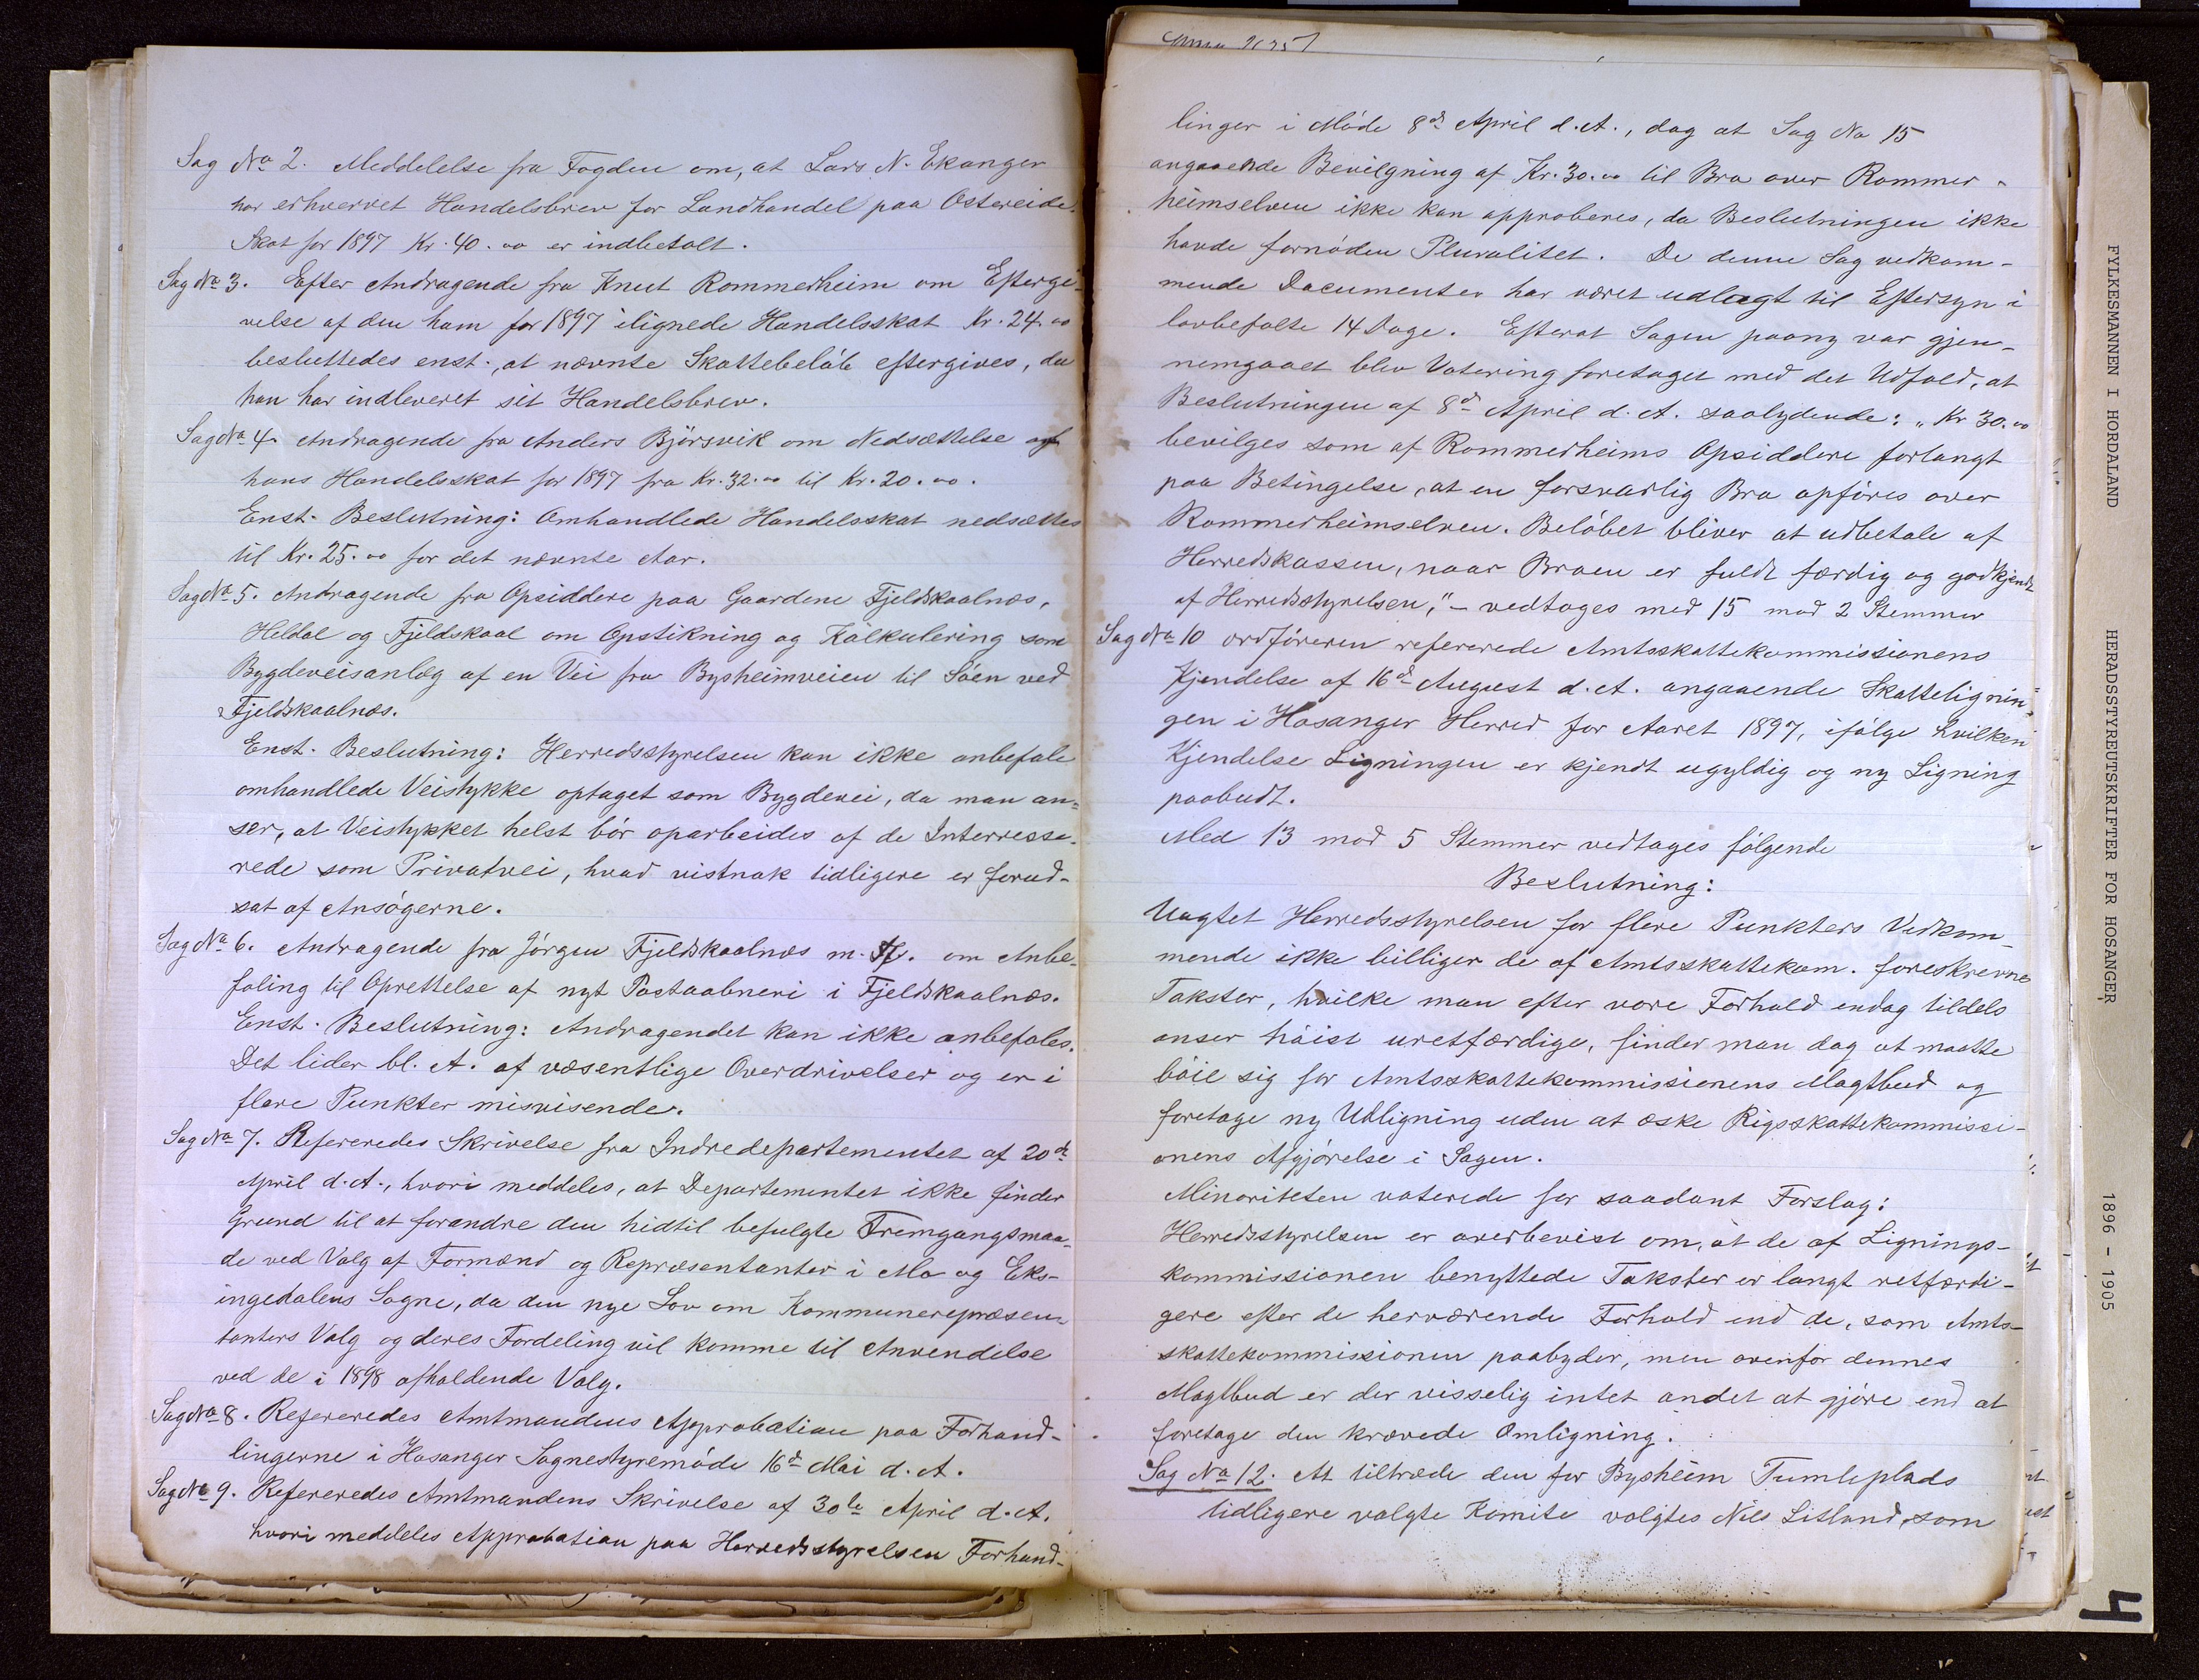 Sag No 2. Meddelelse fra Fogden om, at Lars N. Ekanger
har erhvervet Handelsbrev for Landhandel paa Ostereide.
Skat for 1897 Kr. 40.00 er indbetalt.
Sag No 3. Efter Andragende fra Knut Rommerheim om Eftergi-
velse af den ham for 1897 ilignede Handelsskat Kr. 24.00
besluttedes enst., at nævnte Skattebeløb eftergives, da
han har indleveret sit Handelsbrev.
Sag No 4. Andragende fra Anders Bjørsvik om Nedsættelse af
hans Handelsskat for 1897 fra Kr. 32.00 til Kr. 20.00.
Enst. Beslutning: Omhandlede Handelsskat nedsættes
til Kr. 25.00 for det nævnte Aar.
Sag No 5. Andragende fra Opsiddere paa Gaardene Fjeldskaalnæs,
Heldal og Fjeldskaal om Opstikning og Kalkulering som
Bygdeveisanlæg af en Vei fra Bysheimveien til Søen ved
Fjeldskaalnæs.
Enst. Beslutning: Herredsstyrelsen kan ikke anbefale
omhandlede Veistykke optaget som Bygdevei, da man an=
ser, at Veistykket helst bør oparbeides af de Interresse-
rede som Privatvei, hvad vistnok tidligere er forud-
sat af Ansøgerne.
Sag No 6. Andragende fra Jørgen Fjeldskaalnæs m. fl. om Anbe-
faling til Oprettelse af nyt Postaabneri i Fjeldskaalnæs.
Enst. Beslutning: Andragendet kan ikke anbefales.
Det lider bl. A. af væsentlige Overdrivelser og er i
flere Punkter misvisende.
Sag No 7. Refereredes Skrivelse fra Indredepartementet af 20de
April d. A., hvori meddeles, at Departementet ikke finder
Grund til at forandre den hidtil befulgte Fremgangsmaa-
de ved Valg af Formænd og Repræsentanter i Mo og Eks-
ingedalens Sogne, da den nye Lov om Kommunerepræsen-
tanters Valg og deres Fordeling vil komme til Anvendelse
ved de i 1898 afholdende Valg.
Sag No 8. Refereredes Amtmandens Approbation paa Forhand-
lingerne i Hosanger Sognestyremøde 16de Mai d. A.
Sag No 9. Refereredes Amtmandens Skrivelse af 30te April d. A.
hvori meddeles Approbation paa Herredsstyrelsen Forhand-
linger i Møde 8de April d. A., dog at Sag No 15
angaaende Bevilgning af Kr. 30.00 til Bro over Rommer-
heimselven ikke kan approberes, da Beslutningen ikke
havde fornøden Pluralitet. De denne Sag vedkom-
mende Documenter har været udlagt til Eftersyn i
lovbefalte 14 Dage. Efterat Sagen paany var gjen-
nemgaaet blev Votering foretaget med det Udfald, at
Beslutningen af 8de April d. A. saalydende: „Kr 30.00
bevilges som af Rommerheims Opsiddere forlangt
paa Betingelse, at en forsvarlig Bro opføres over
Rommerheimselven. Beløbet bliver at udbetale af
Herredskassen, naar Broen er fuldt færdig og godkjendt
af Herredsstyrelsen," - vedtages med 15 mod 2 Stemmer
Sag No 10 Ordføreren refererede Amtsskattekommissionens
Kjendelse af 16de August d. A. angaaende Skattelignin=
gen i Hosanger Herred for Aaret 1897, ifølge hvilken
Kjendelse Ligningen er kjendt ugyldig og ny Ligning
paabudt.
Med 13 mod 5 Stemmer vedtages følgende
Beslutning:
Uagtet Herredsstyrelsen for flere Punkters Vedkom-
mende ikke billiger de af Amtsskattekom. foreskrevne
Takster, hvilke man efter vore Forhold endog tildels
anser høist uretfærdige, finder man dog at maatte
bøie sig for Amtsskattekommissionens Magtbud og
foretage ny Udligning uden at æske Rigsskattekommissi-
onens Afgjørelse i Sagen.
Minoriteten voterede for saadant Forslag:
Herredsstyrelsen er overbevist om, at de af Lignings-
kommissionen benyttede Takster er langt retfærdi-
gere efter de herværende Forhold end de, som Amts-
skattekommissionen paabyder, men ovenfor dennes
Magtbud er der visselig intet andet at gjøre end at
foretage den krævede Omligning.
Sag No 12. At tiltræde den for Bysheim Tumleplads
tidligere valgte Komite valgtes Nils Litland, som
FYLKESMANNEN I HORDALAND HERADSSTYREUTSKRIFTER FOR HOSANGER 1896 - 1905
4